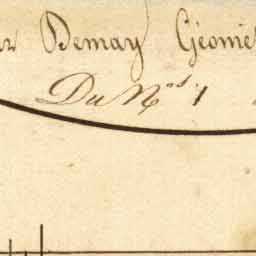 Demay Géomè
Du Nos 1